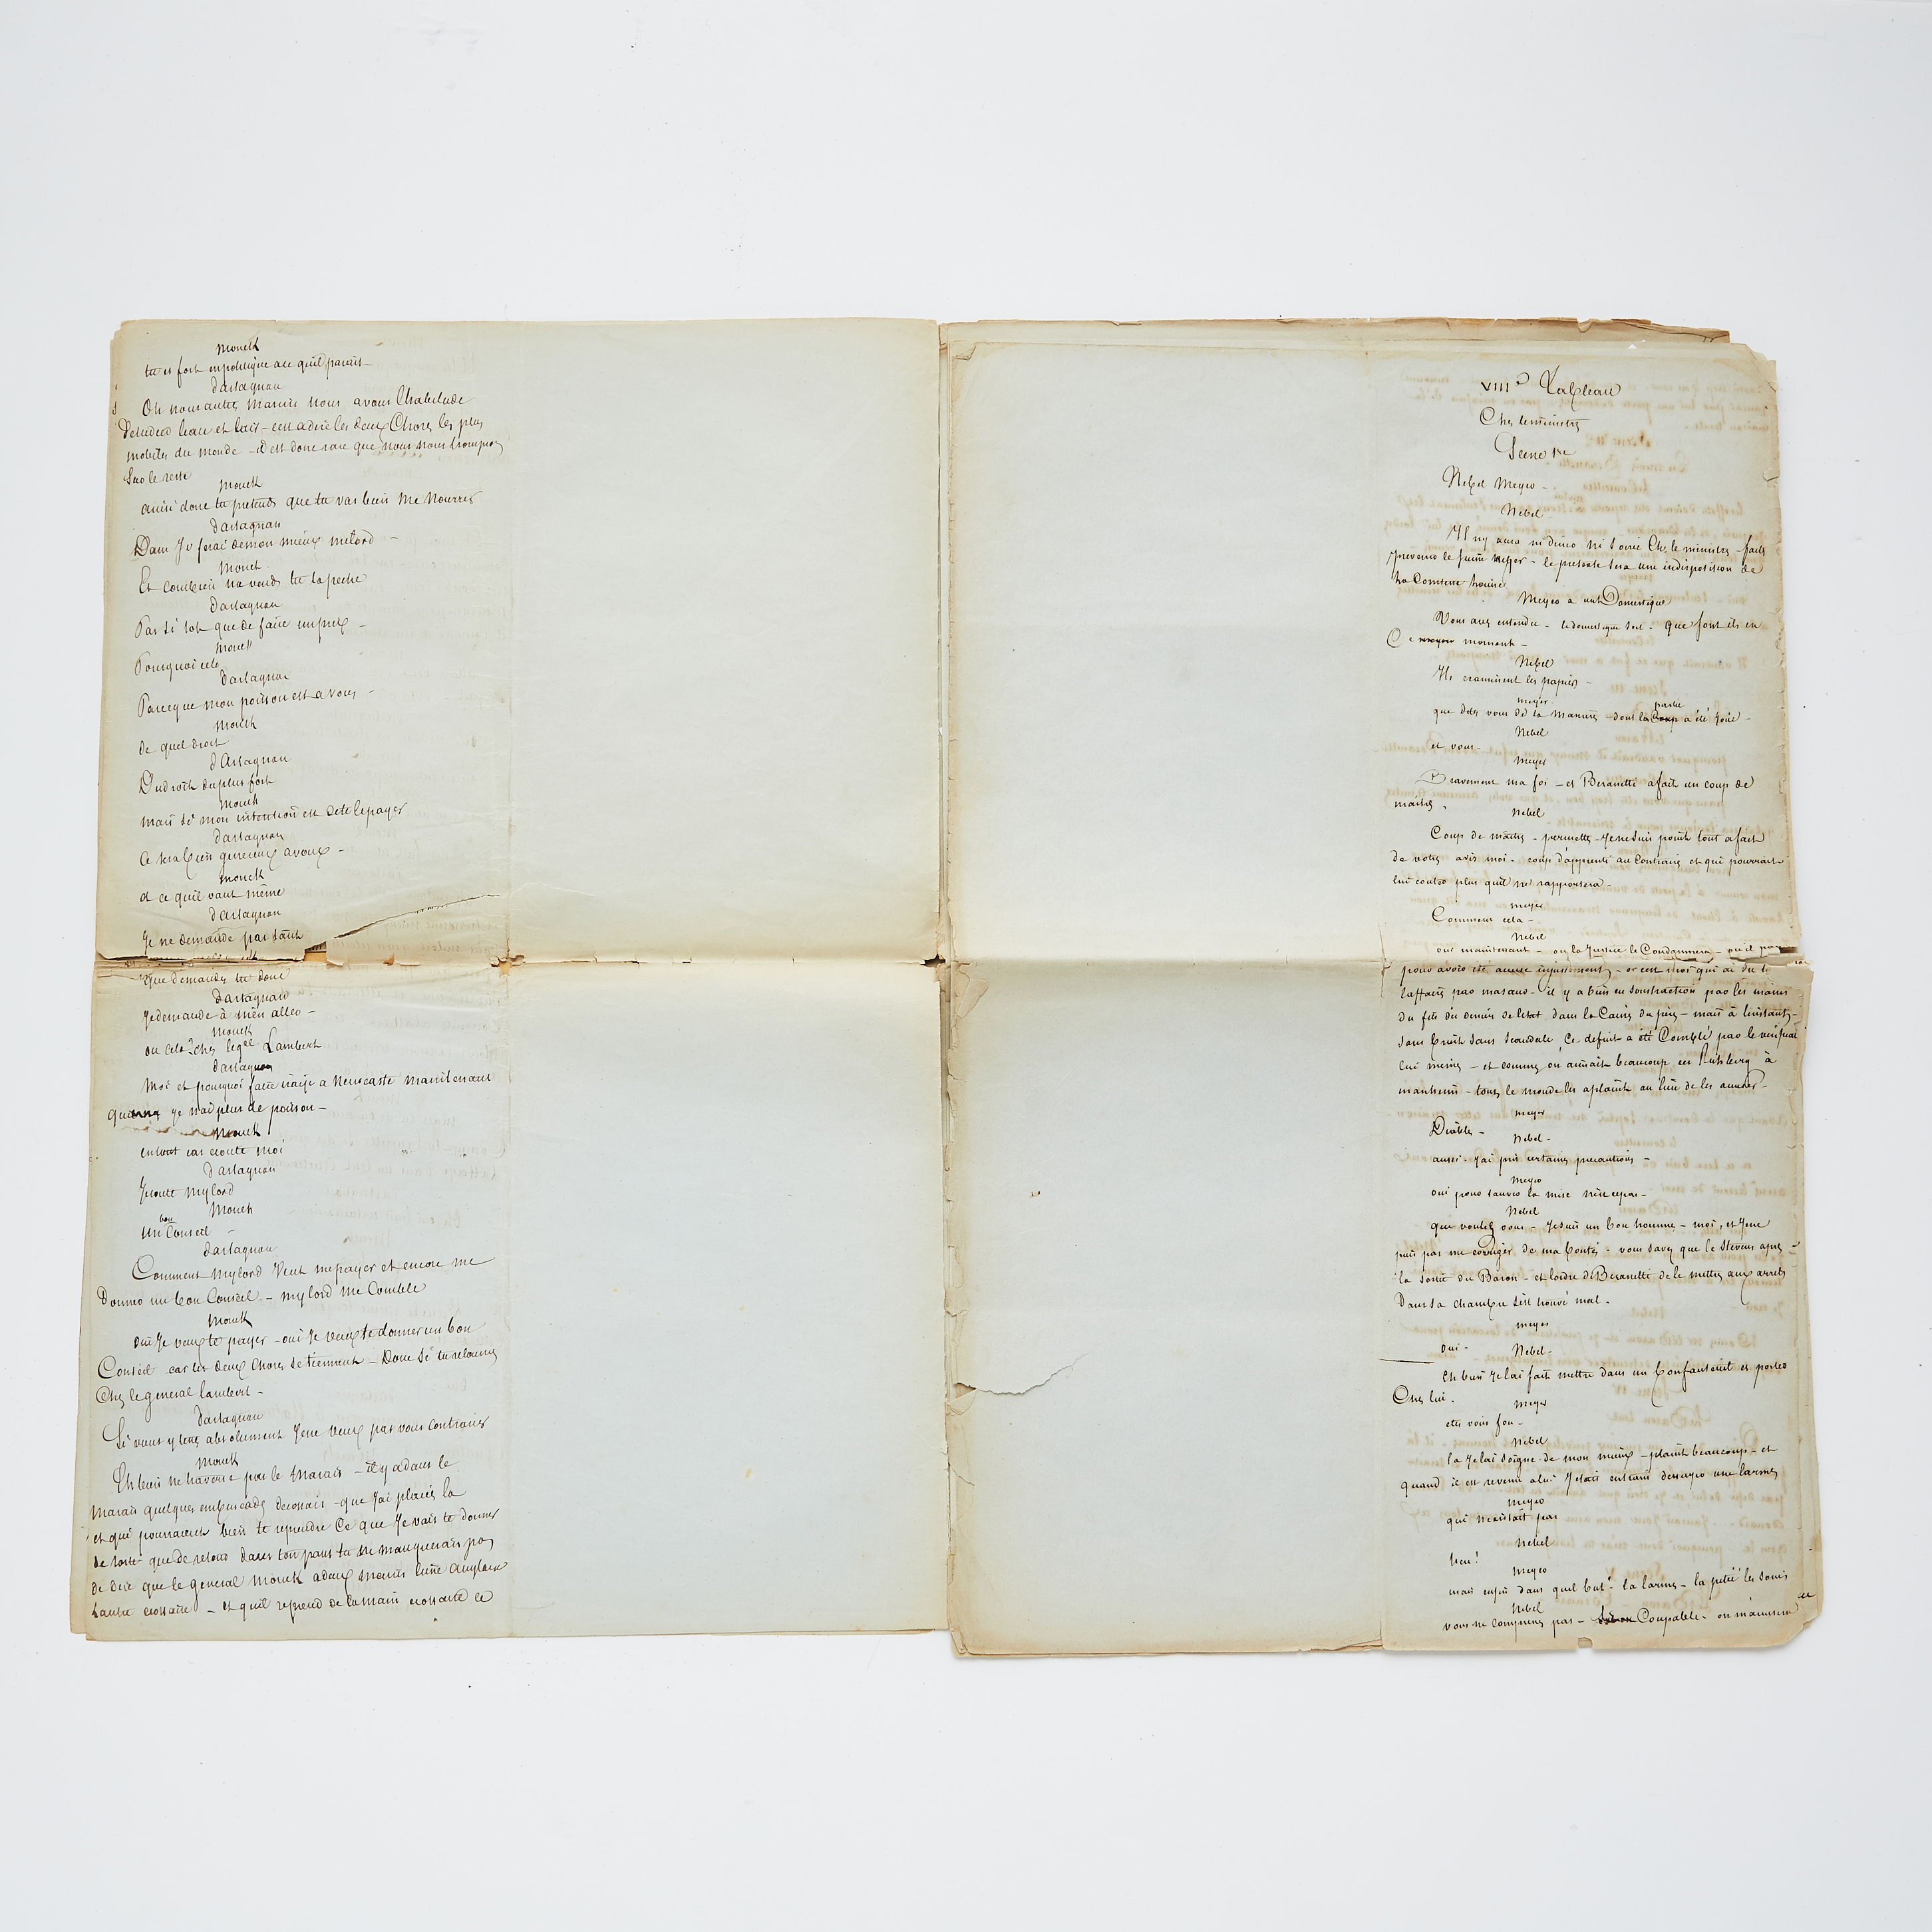 Monck
tu es fort en politique a ce quil parait –
dartagnan
Oh nous autres marins nous avons lhabitude
detudier leau et lair – cest a dire les deux Choses les plus
mobiles du monde – il est donc rare que nous nous trompions
Sur le reste
Monck
ainsi donc tu pretends que tu vas bien me Nourrir
dartagnan
Dam Je ferai de mon mieux milord –
Monck
Et combien me vends tu ta peche
dartagnan
Pas si sot que de faire un prix –
Monck
Pourquoi cela
dartagnan
Parceque mon poisson est a vous –
Monck
de quel droit
dArtagnan
Du droit du plus fort
Monck
mais si mon intention est de te le payer
dartagnan
Ce sera bien genereux a vous –
Monck
et ce quil vaut même
dartagnan
Je ne demande pas tant
Que demandes tu donc
dartagnan
Je demande à m'en aller –
Monck
ou cela? chez le gal Lambert
dartagnan
Moi et pourquoi faire irais je a Newcastle maintenant
que je nai plus de poisson –
Monck
en tout cas ecoute moi
dartagnan
Jecoute mylord
Monck
un bon Conseil –
dartagnan
Comment Mylord Veut me payer et encore me
Donner un bon Conseil – mylord me Comble
Monck
Oui Je veux te payer – oui Je veux te donner un bon
Conseil car les deux Choses se tiennent – Donc Si tu retournes
Chez le general lambert –
dartagnan
Si vous y tenez absolument Je ne veux pas vous contrarier
Monck
Eh bien ne traverse pas le Marais – il y a dans le
Marais quelques embuscades decossais – que Jai placés la
et qui pourraient bien te reprendre Ce que Je vais te donner
de sorte que de retour dans ton pays tu ne manquerais pas
de dire que le general Monck a deux mains lune Anglaise
lautre ecossaise – et quil reprend de la main ecossaise ce
VIIIe Tableau
Chez le ministre
Scene 1re
Nebel Meyer –
Nebel
Il ny aura ni diner ni soirée Chez le ministre – faites
prevenir le Jeune Meyer – le pretexte sera une indisposition de
la Comtesse
Meyer a un Domestique
Vous avez entendu – le domestique sort – que font ils en
Ce moment –
Nebel
Ils examinent les papiers –
Meyer
que dites vous de la maniere – dont la partie a été Jouée –
Nebel
et vous –
Meyer
Bravement ma foi – et Beranetti a fait un coup de
maitre.
Nebel
Coup de maitre – permettez – Je ne suis point tout a fait
de votre avis moi – coup d'apprenti au Contraire et qui pourrait
lui couter plus quil ne rapportera –
Meyer
Comment cela –
Nebel
oui maintenant – ou la Justice le Condamnera – ou il
pour avoir été accusé injustement – or cest moi qui ai
laffaire – il y a bien eu soustraction par les mains
du fils des deniers de letat dans la Caisse du père – mais à linstant –
sans bruit sans Scandale, Ce deficit a été Comblé par le
lui meme – et comme on aimait beaucoup à
manheim – tout le monde les a plaint au lieu de les accuser –
Meyer
Diable –
Nebel –
aussi – Jai pris certaines precautions –
Meyer
oui pour sauver la mise
Nebel
que voulez vous – Je suis un bon homme – moi, et Je ne
puis pas me corriger de ma bonté – vous savez que le Stevens apres
la sortie du Baron – et lordre de Beranetti de le mettre aux arrets
Dans sa chambre sest trouvé mal –
Meyer
oui –
Nebel –
Eh bien Je lai fait mettre dans un bon fauteuil et porter
Chez lui –
Meyer
etes vous fou –
Nebel
la Je lai soigné de mon mieux – plaint beaucoup – et
quand il est revenu a lui Jetais en train dessuyer une larme
Meyer
qui nexistait pas
Nebel
heu!
Meyer
mais enfin dans quel but – la larme – la pitié les soins
Nebel
vous ne comprenez pas – Coupable – on maccusera